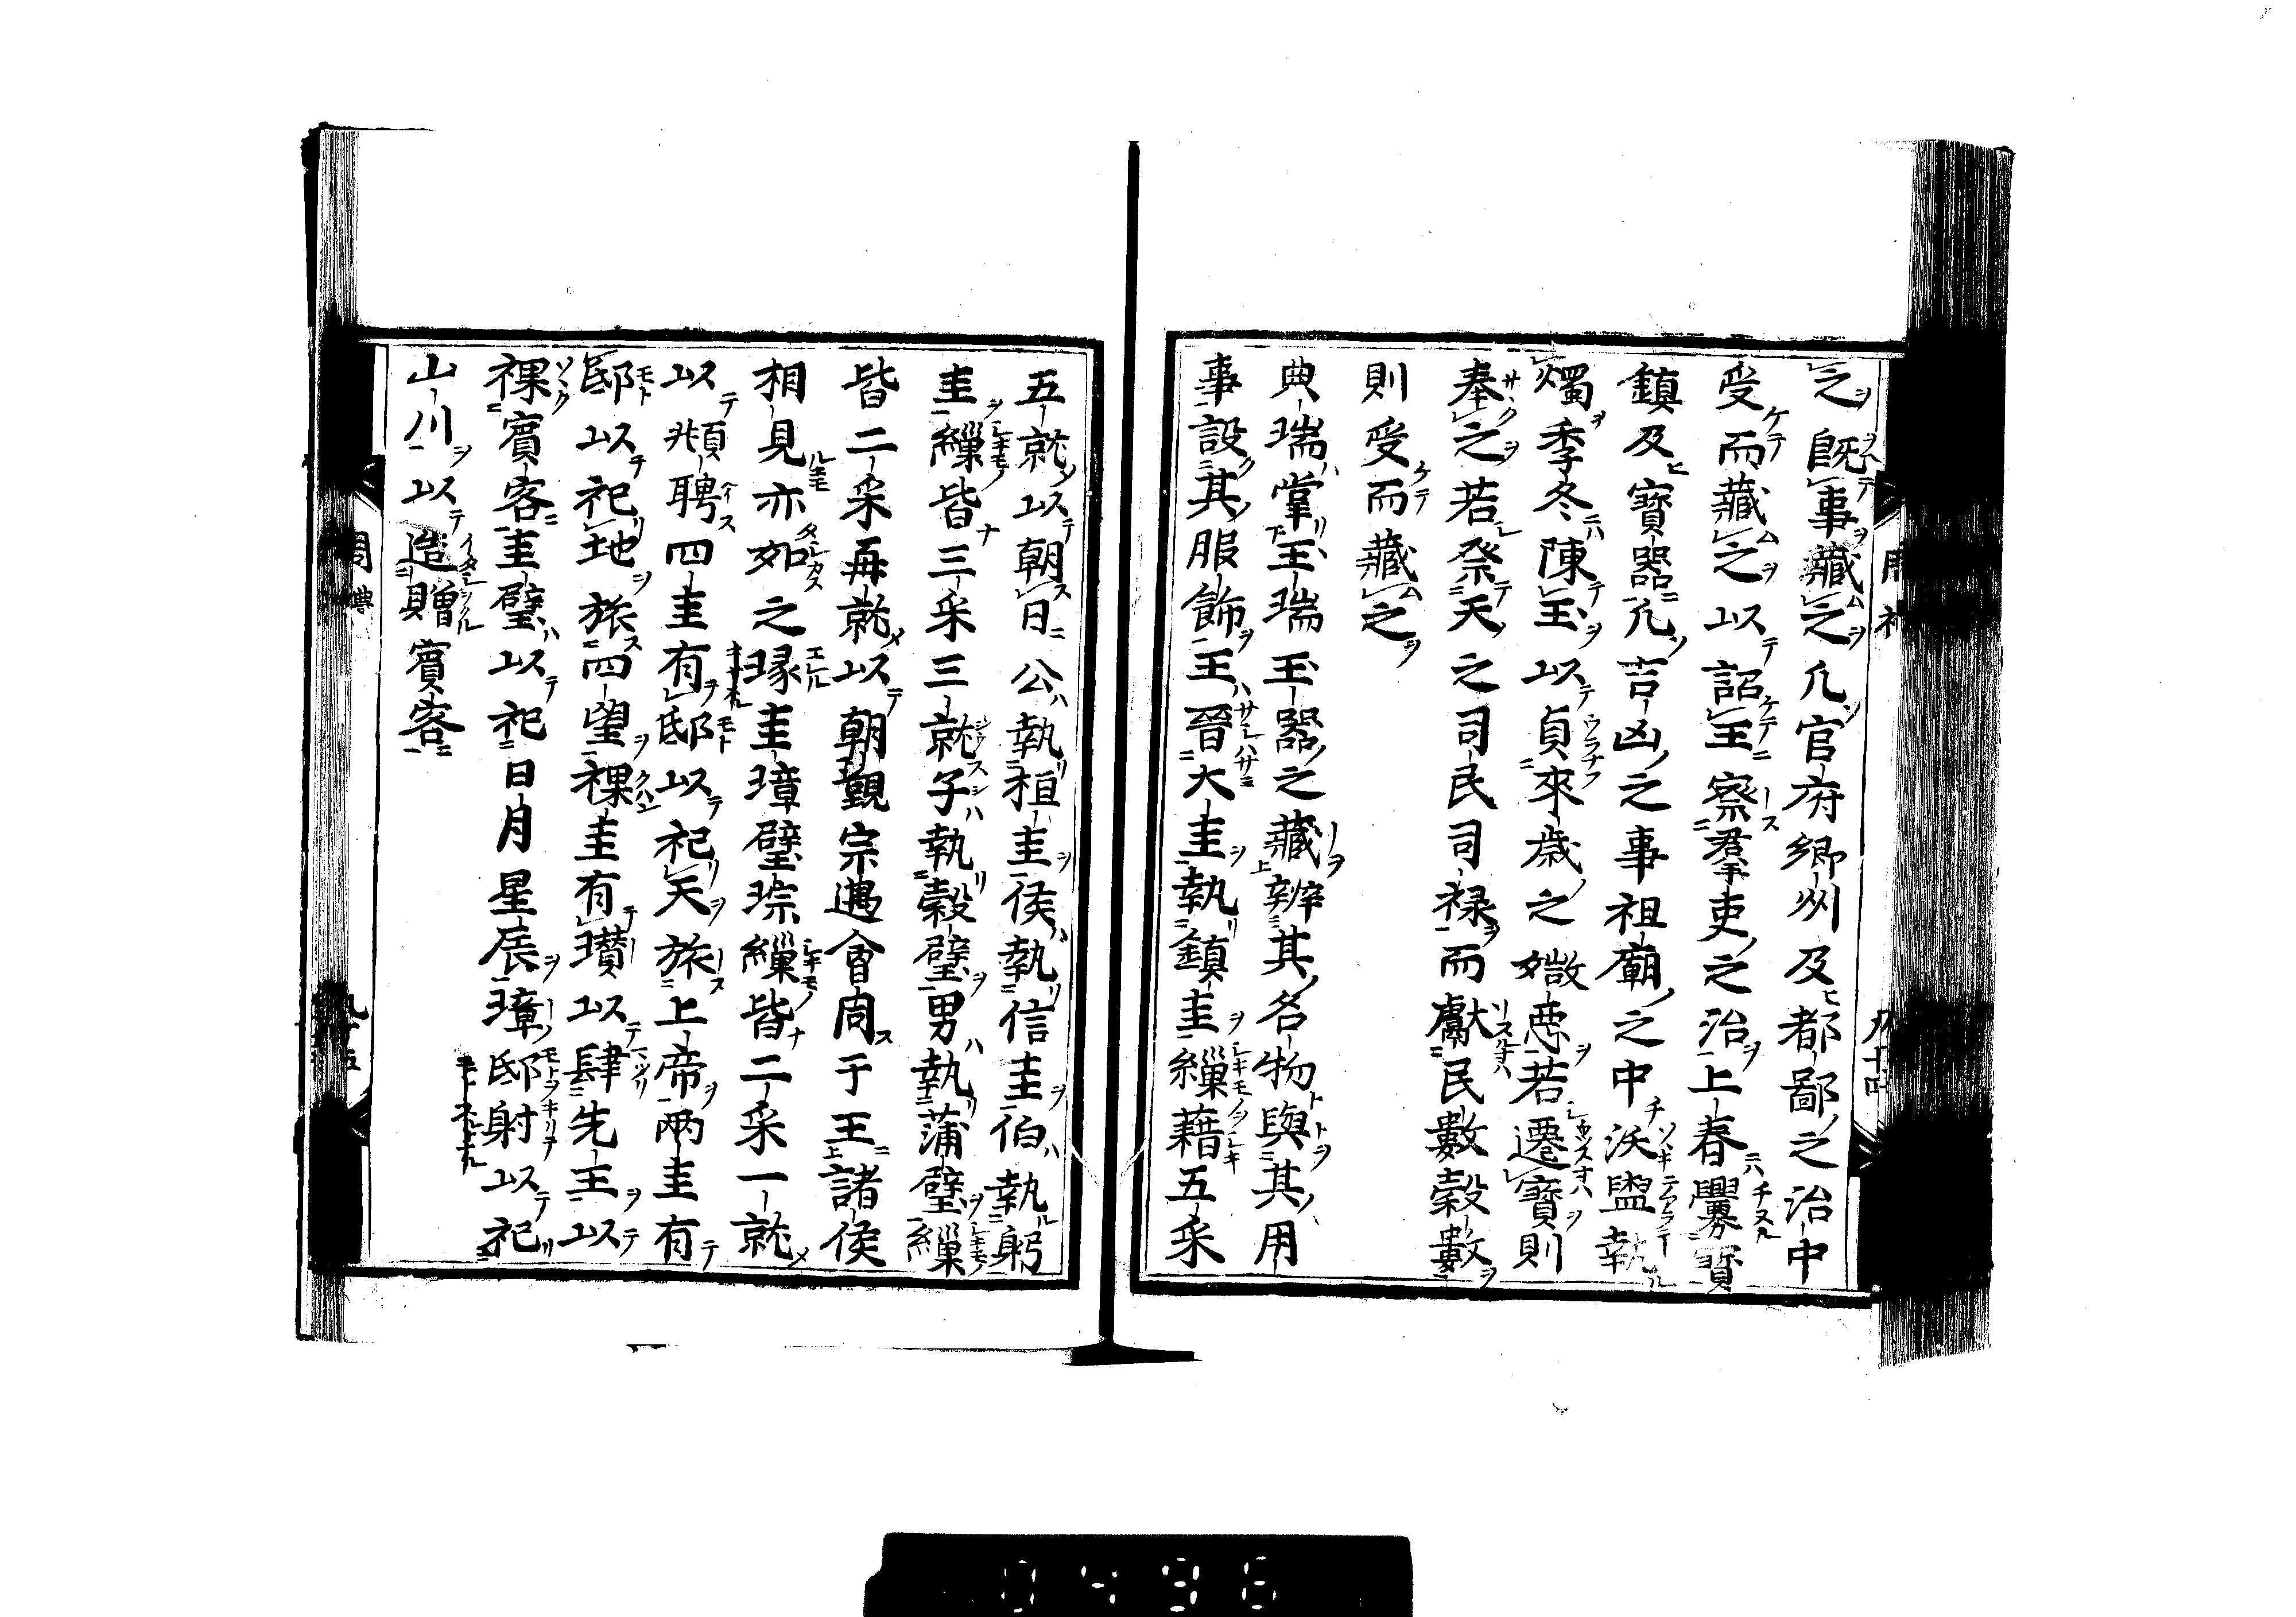 之既事藏之凡官府鄉州及都鄙之治中
受而藏之以詔王察羣吏之治上春釁寶
鎮及寶器凡吉凶之事祖廟之中沃盥執
燭季冬陳玉以貞來歲之媺惡若遷寶則
奉之若祭天之司民司祿而獻民數穀數
則受而藏之
典瑞掌玉瑞玉器之藏辨其名物與其用
事設其服飾王晉大圭執鎮圭繅藉五采
五就以朝日公執桓圭侯執信圭伯執躬
圭繅皆三采三就子執穀璧男執蒲璧繅
皆二采再就以朝覲宗遇會同于王諸侯
相見亦如之瑑圭璋璧琮繅皆二采一就
以頫聘四圭有邸以祀天旅上帝兩圭有
邸以祀地旅四望祼圭有瓚以肆先王以
祼賓客圭璧以祀日月星辰璋邸射以祀
山川以造贈賓客
0496